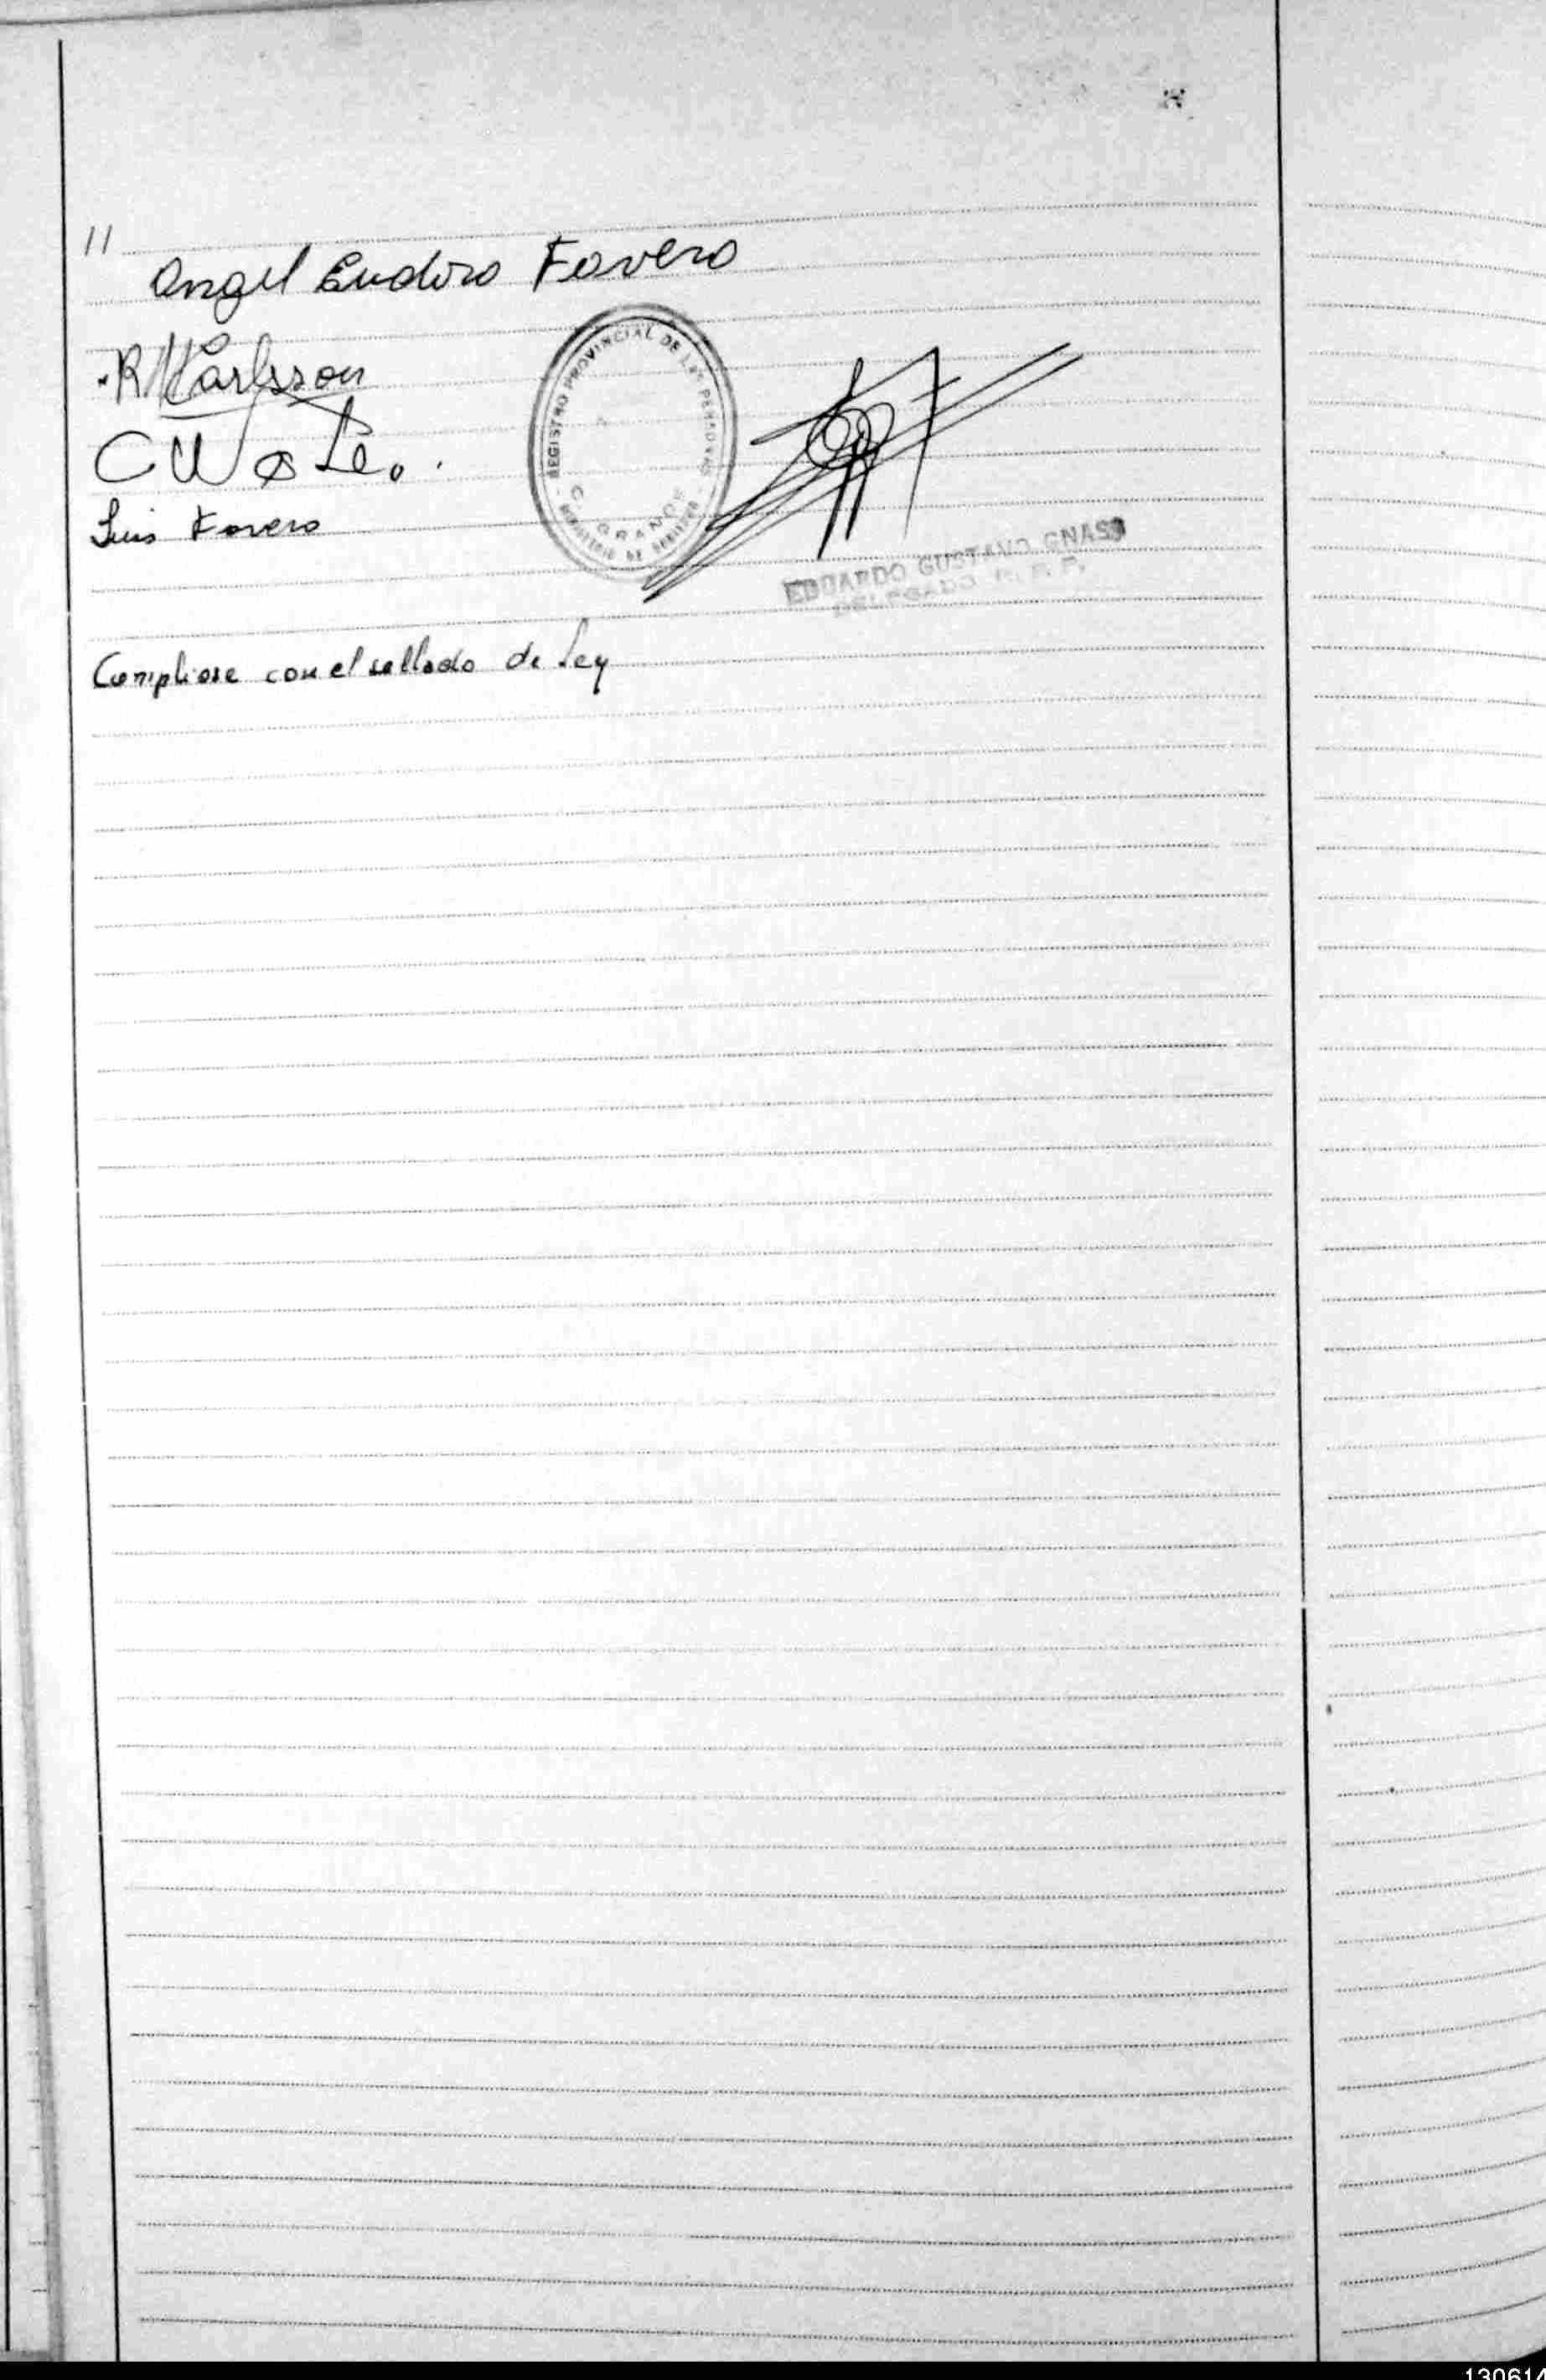 //
Angel Eudoro Favero
R Karlsson
Luis Favero
REGISTRO PROVINCIAL DE LAS PERSONAS
C. GRANDE
MINISTERIO DE GOBIERNO
EDUARDO GUSTAVO GNASS
DELEGADO R. P. P.
Compliose con el sellado de Ley
130614